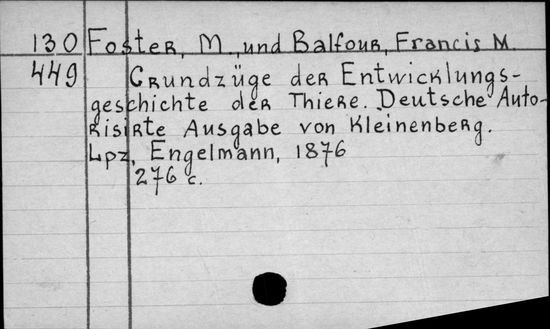 130 Foster, M. und Balfour, Francis M.
449 Grundzüge der Entwicklungs-
geschichte der Thiere. Deutsche Auto-
risirte Ausgabe von Kleinenberg.
Lpz, Engelmann, 1876
276 c.